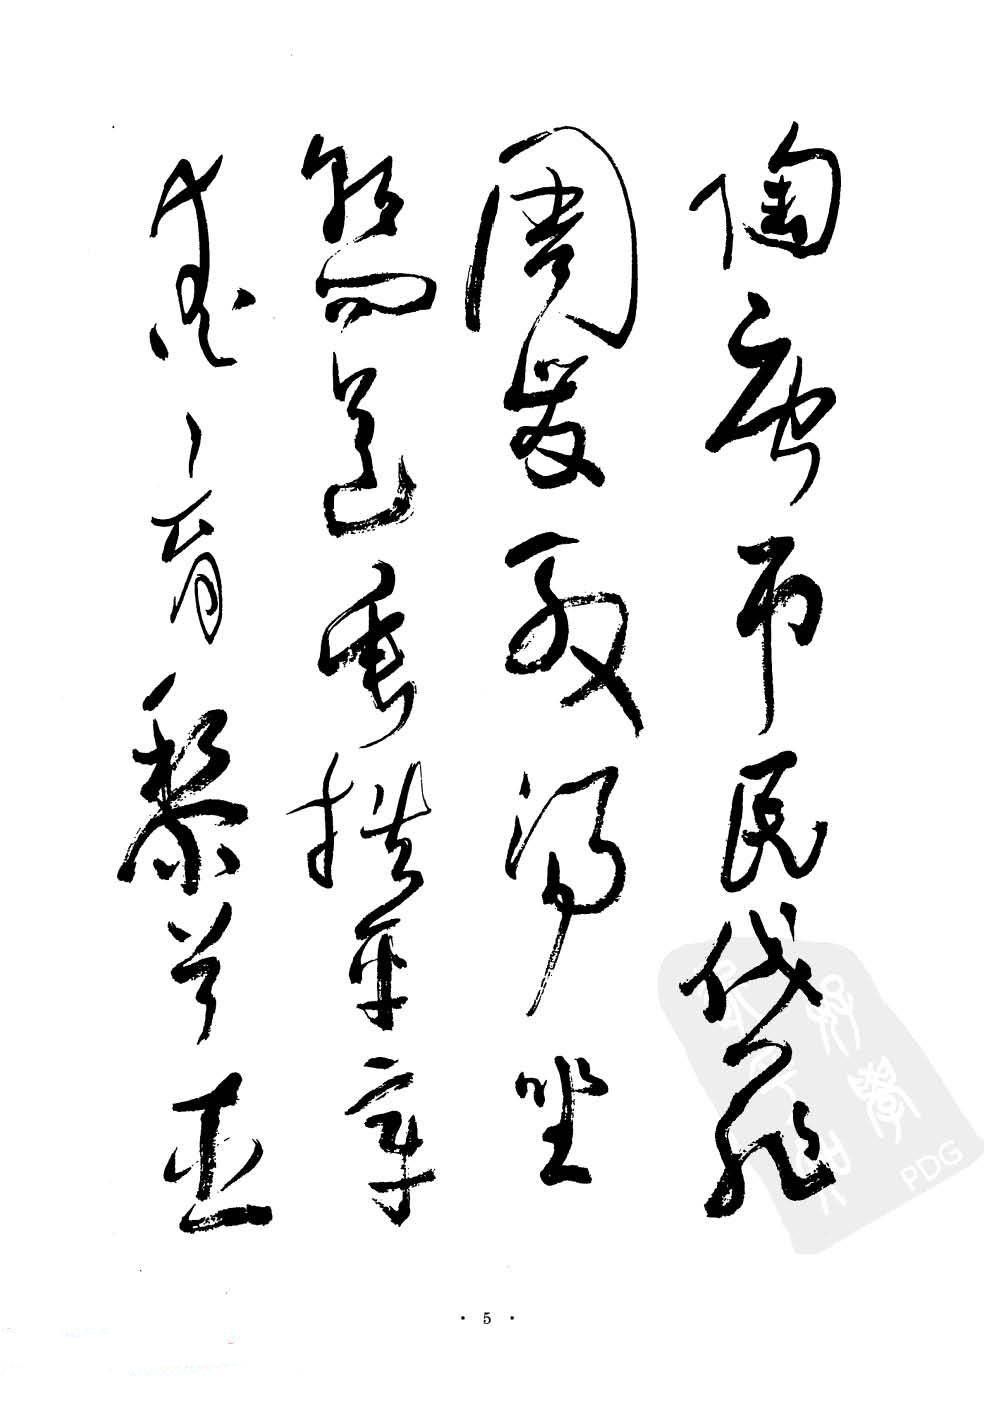 陶唐吊民伐罪
周发殷汤坐
朝问道垂拱平章
爱育黎首臣
· 5 ·
PDG